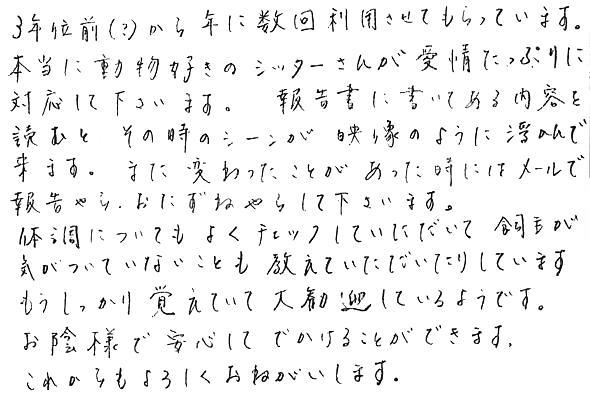 3年位前(?)から年に数回利用させてもらっています。
本当に動物好きのシッターさんが愛情たっぷりに
対応して下さいます。 報告書に書いてある内容を
読むと その時のシーンが 映像のように浮かんで
来ます。また変わったことがあった時にはメールで
報告やら、おたずねやらして下さいます。
体調についてもよくチェックしていただいて 飼主が
気がついていないことも教えていただいたりしています
もうしっかり覚えていて大歓迎しているようです。
お陰様で安心してでかけることができます。
これからもよろしくおねがいします。